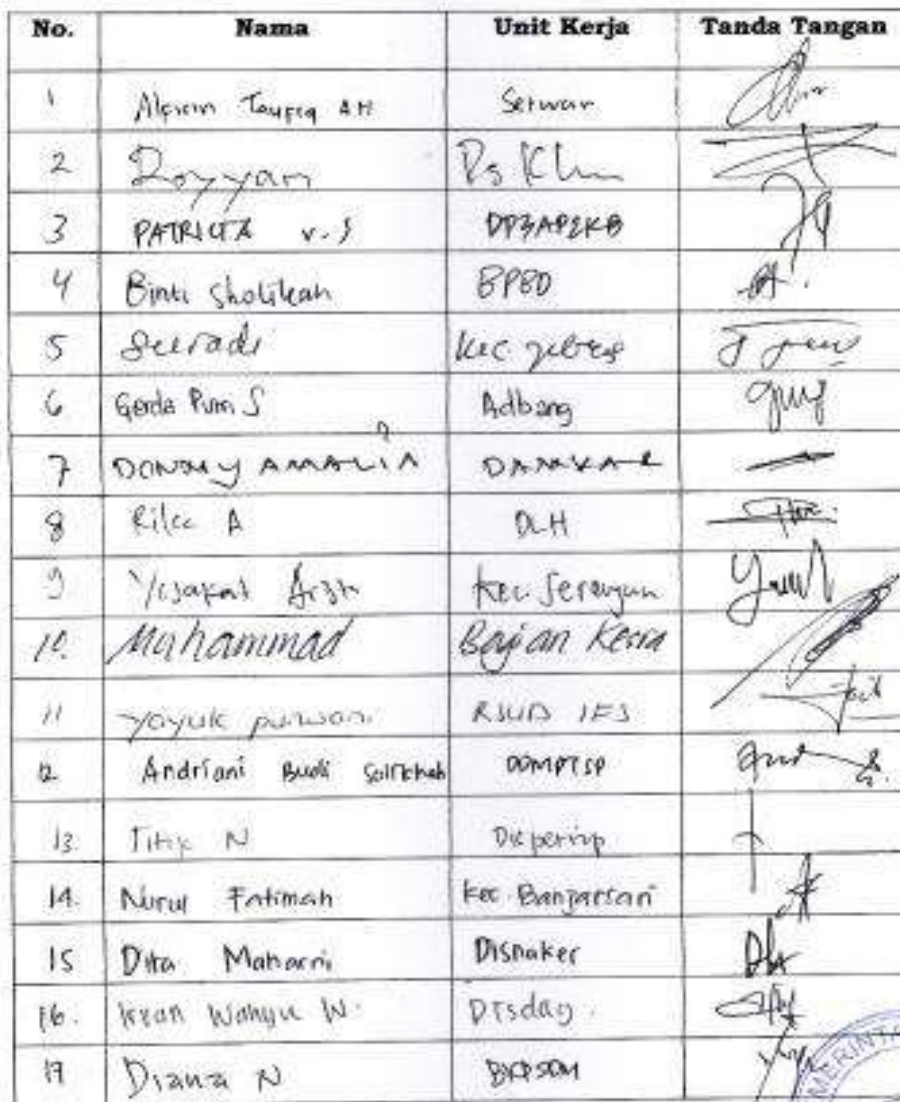 No. Nama Unit Kerja Tanda Tangan
1 Taufiq AH Setwan
2 Royyan
3 PATRICIA V.S DP3AP2KB
4 Binti Sholikah BPBD
5 Suradi Kec Jebres
6 Gerda Purn S Adbang
7 DONNY AMALIA DAMKAR
8 Rika A DLH
9 Kec. Serengan
10. Muhammad Bagian Kesra
11 yayuk purwani RSUD IFS
12 Andriani Budi Solikhah DPMPTSP
13 Titik N Disperinp
14. Nurul Fatimah Kec. Banjarsari
15 Dita Maharni Disnaker
16. Wahyu W. Disdag.
17 Diana N BKPSDM
MERINTA